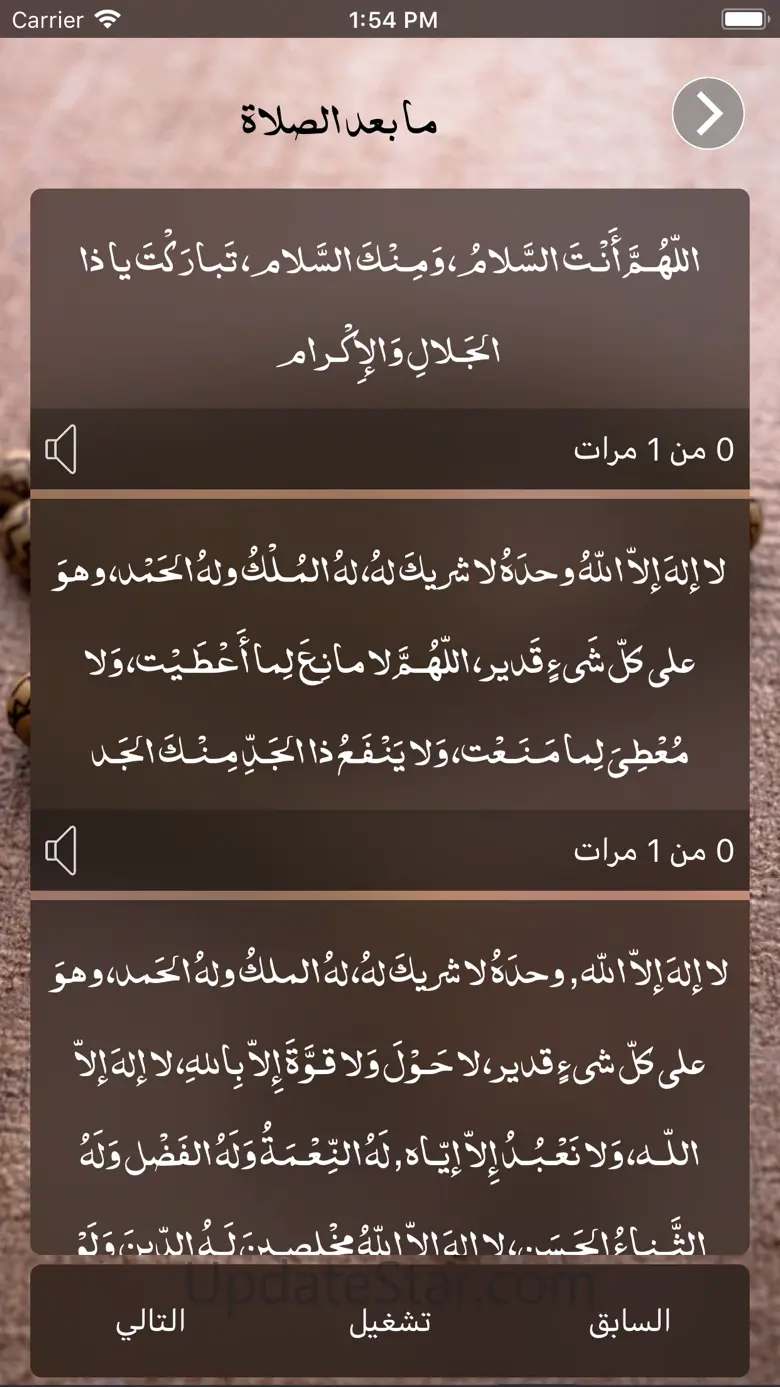 Carrier 1:54 PM
ما بعد الصلاة
اللّهُمَّ أَنْتَ السَّلامُ، وَمِنْكَ السَّلام، تَبارَكْتَ يا ذا
الجَلالِ وَالإِكْرام
0 من 1 مرات
لا إلهَ إلاّ اللّهُ وحدَهُ لا شريكَ لهُ، لهُ المُلْكُ ولهُ الحَمْد، وهوَ
على كلّ شَىءٍ قَدير، اللّهُمَّ لا مانِعَ لِما أَعْطَيْت، وَلا
مُعْطِيَ لِما مَنَعْت، وَلا يَنْفَعُ ذا الجَدِّ مِنْكَ الجَد
0 من 1 مرات
لا إلهَ إلاّ اللّه, وحدَهُ لا شريكَ لهُ، لهُ الملكُ ولهُ الحَمد، وهوَ
على كلّ شىءٍ قدير، لا حَوْلَ وَلا قوَّةَ إِلاّ بِاللهِ، لا إلهَ إلاّ
اللّه، وَلا نَعْبُدُ إِلاّ إيّاه, لَهُ النِّعْمَةُ وَلَهُ الفَضْل وَلَهُ
الثَّناءُ الحَسَن، لا إلهَ إلاّ اللّهُ مخْلِصينَ لَهُ الدِّينَ وَلَوْ
UpdateStar.com
السابق تشغيل التالي